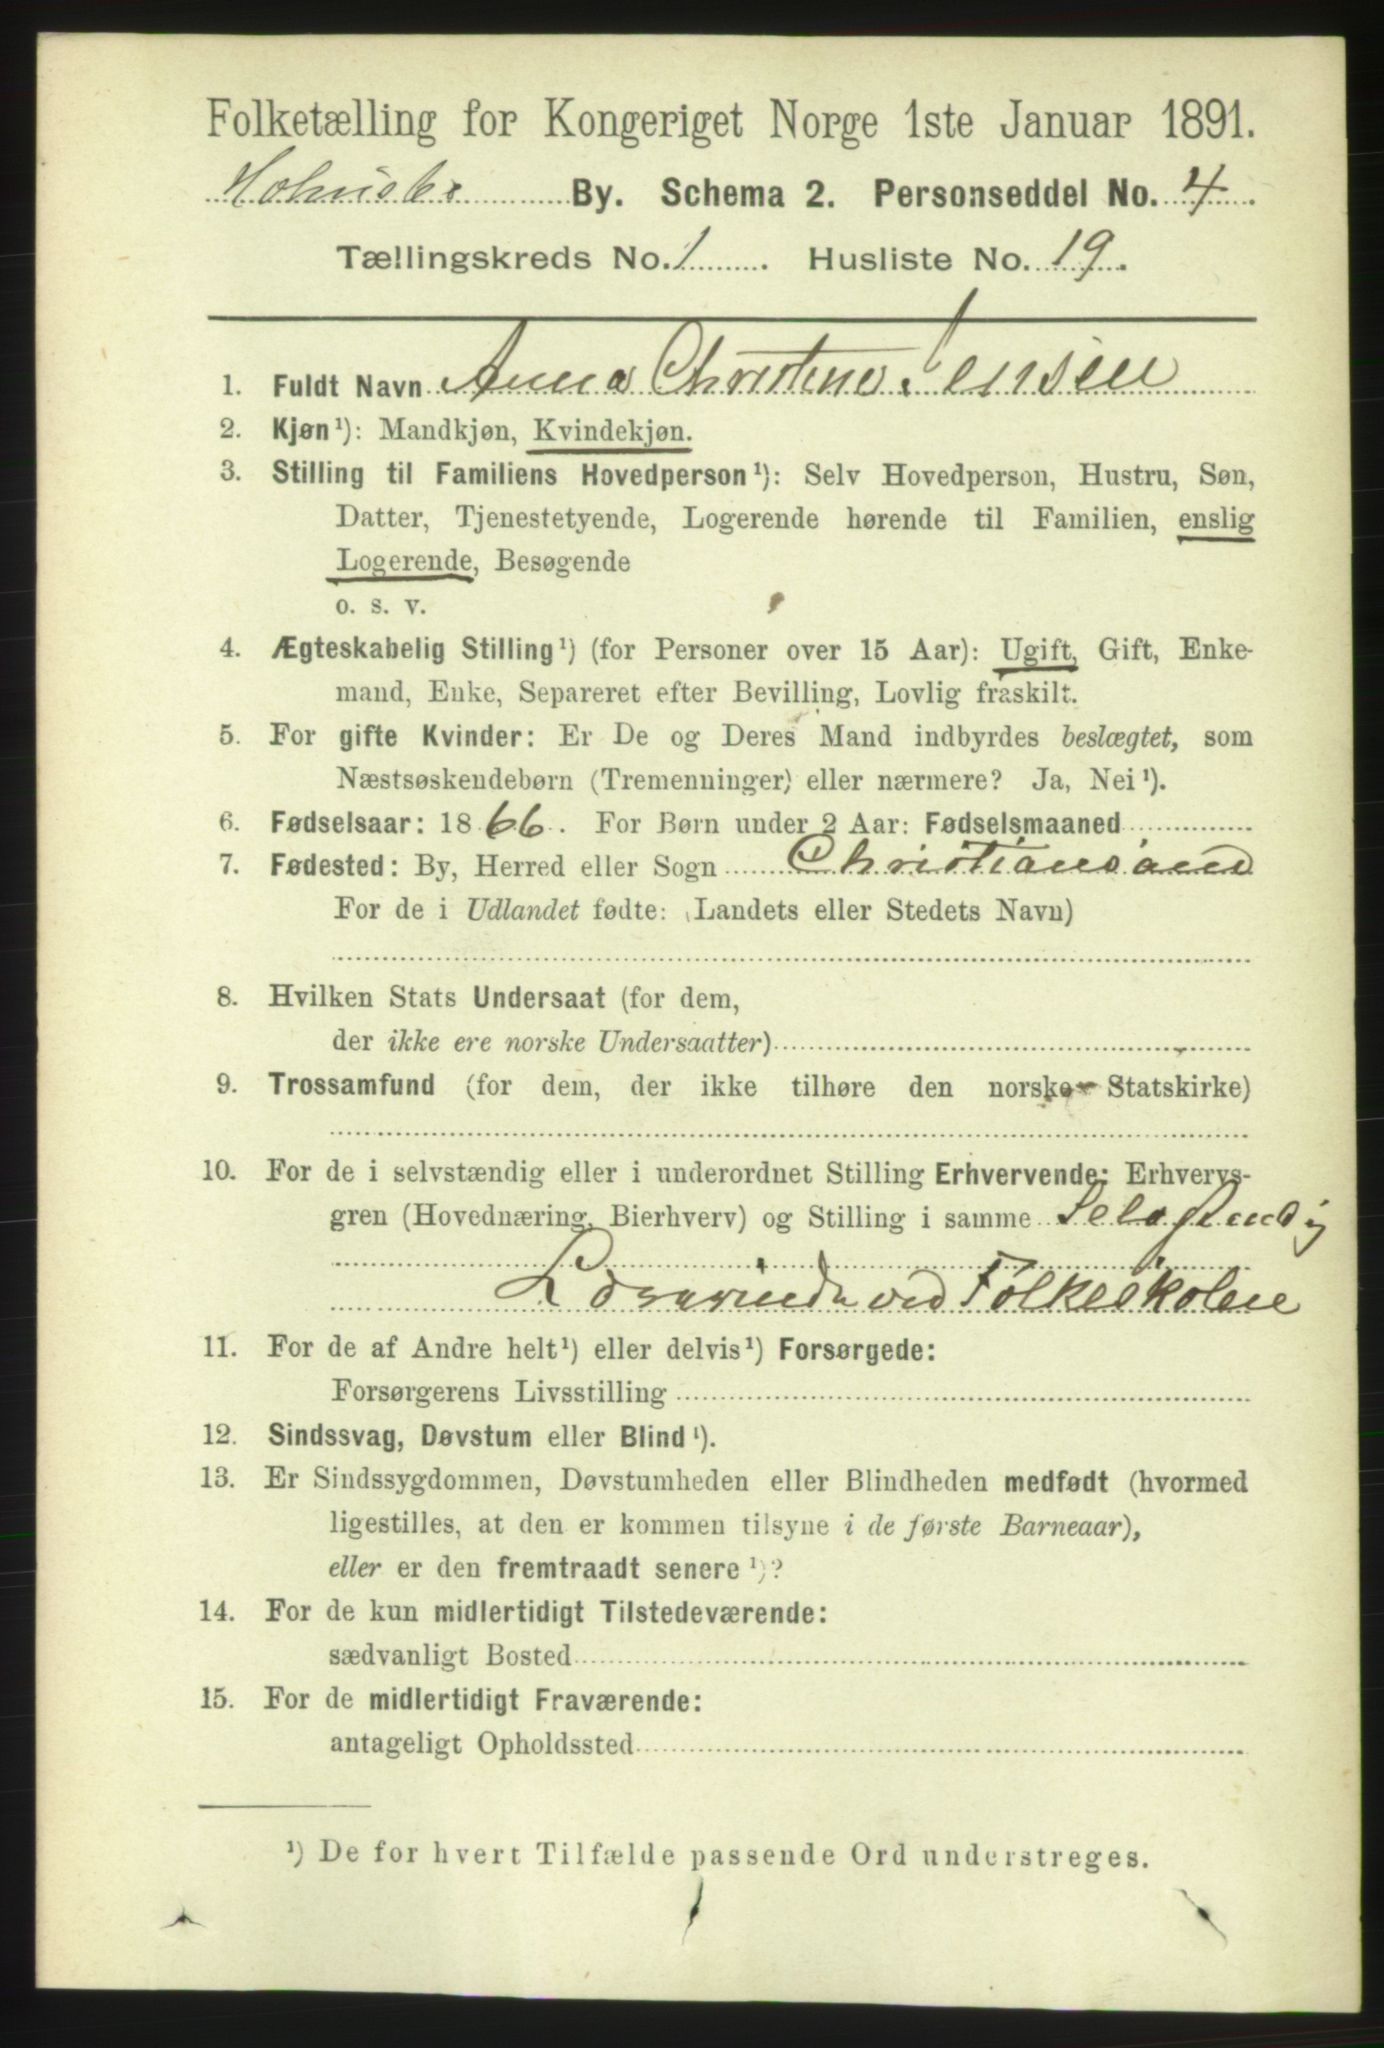 Folketælling for Kongeriget Norge 1ste Januar 1891.
By. Schema 2. Personseddel No. 4.
Tællingskreds No. 1. Husliste No. 19.
1. Fuldt Navn Anna Christine Jensen
2. Kjøn¹): Mandkjøn, Kvindekjøn.
3. Stilling til Familiens Hovedperson¹): Selv Hovedperson, Hustru, Søn,
Datter, Tjenestetyende, Logerende hørende til Familien, enslig
Logerende, Besøgende
o. s. v.
4. Ægteskabelig Stilling¹) (for Personer over 15 Aar): Ugift, Gift, Enke-
mand, Enke, Separeret efter Bevilling, Lovlig fraskilt.
5. For gifte Kvinder: Er De og Deres Mand indbyrdes beslægtet, som
Næstsøskendebørn (Tremenninger) eller nærmere? Ja, Nei¹).
6. Fødselsaar: 1866. For Børn under 2 Aar: Fødselsmaaned
7. Fødested: By, Herred eller Sogn Christiansand
For de i Udlandet fødte: (Landets eller Stedets Navn)
8. Hvilken Stats Undersaat (for dem,
der ikke ere norske Undersaatter)
9. Trossamfund (for dem, der ikke tilhøre den norske Statskirke)
10. For de i selvstændig eller i underordnet Stilling Erhvervende: Erhvervs-
gren (Hovednæring, Bierhverv) og Stilling i samme Selvstændig
Lærerinde ved Folkeskolen
11. For de af Andre helt¹) eller delvis¹) Forsørgede:
Forsørgerens Livsstilling
12. Sindssvag, Døvstum eller Blind¹).
13. Er Sindssygdommen, Døvstumheden eller Blindheden medfødt (hvormed
ligestilles, at den er kommen tilsyne i de første Barneaar),
eller er den fremtraadt senere¹)?
14. For de kun midlertidigt Tilstedeværende:
sædvanligt Bosted
15. For de midlertidigt Fraværende:
antageligt Opholdssted
¹) De for hvert Tilfælde passende Ord understreges.